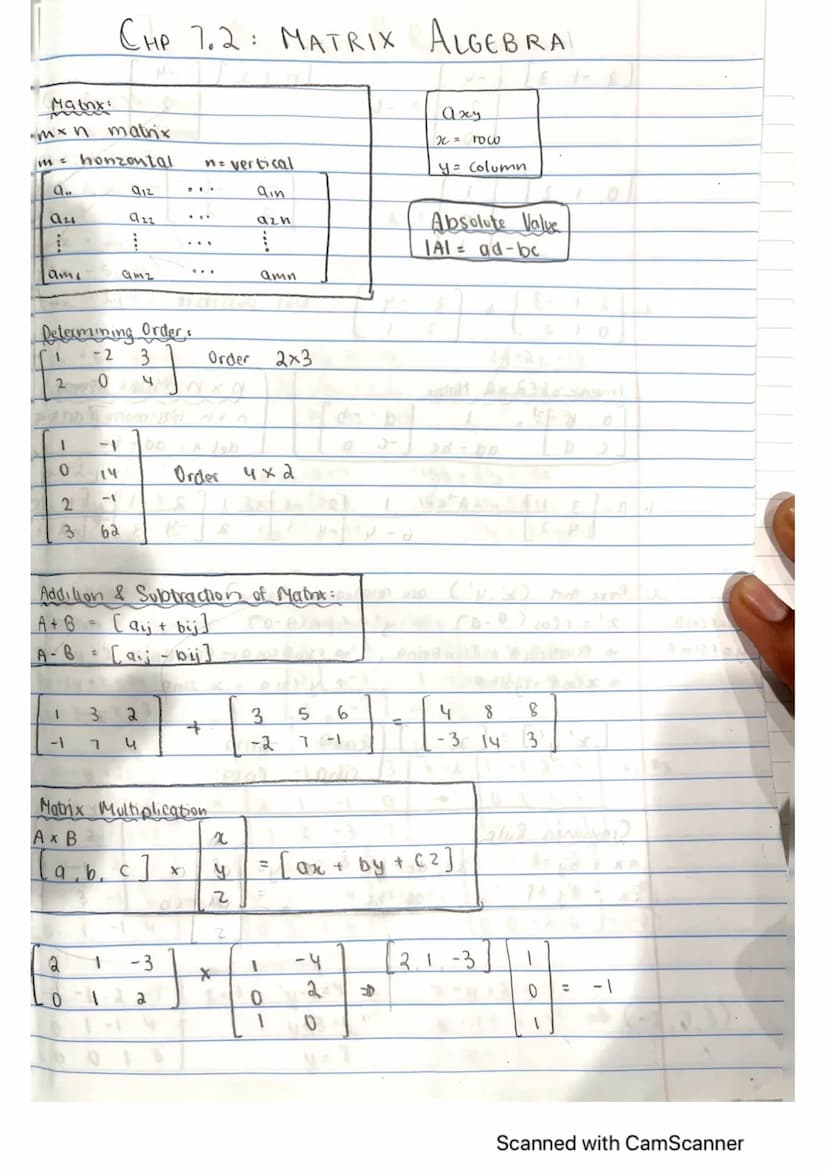 CHP 7.2: MATRIX ALGEBRA
Matrix:
m×n matrix
m = horizontal n = vertical
a11 a12 ... a1n
a21 a22 ... a2n
⋮ ⋮ ... ⋮
am1 am2 ... amn
axy
x = row
y = column
Absolute Value
|A| = ad-bc
Determining Order:
[1 -2 3] Order 2×3
[2 0 4]
[1 -1]
[0 14] Order 4×2
[2 -1]
[3 62]
Addition & Subtraction of Matrix:
A+B = [aij + bij]
A-B = [aij - bij]
[1 3 2] + [3 5 6] = [4 8 8]
[-1 7 4] [-2 7 -1] [-3 14 3]
Matrix Multiplication
A×B [x]
[a, b, c] × [y] = [ax + by + cz]
[z]
[2 1 -3] × [1 -4] ⇒ [2, 1, -3] [1]
[0 1 2] [0 2] [0] = -1
[1 0] [1]
Scanned with CamScanner